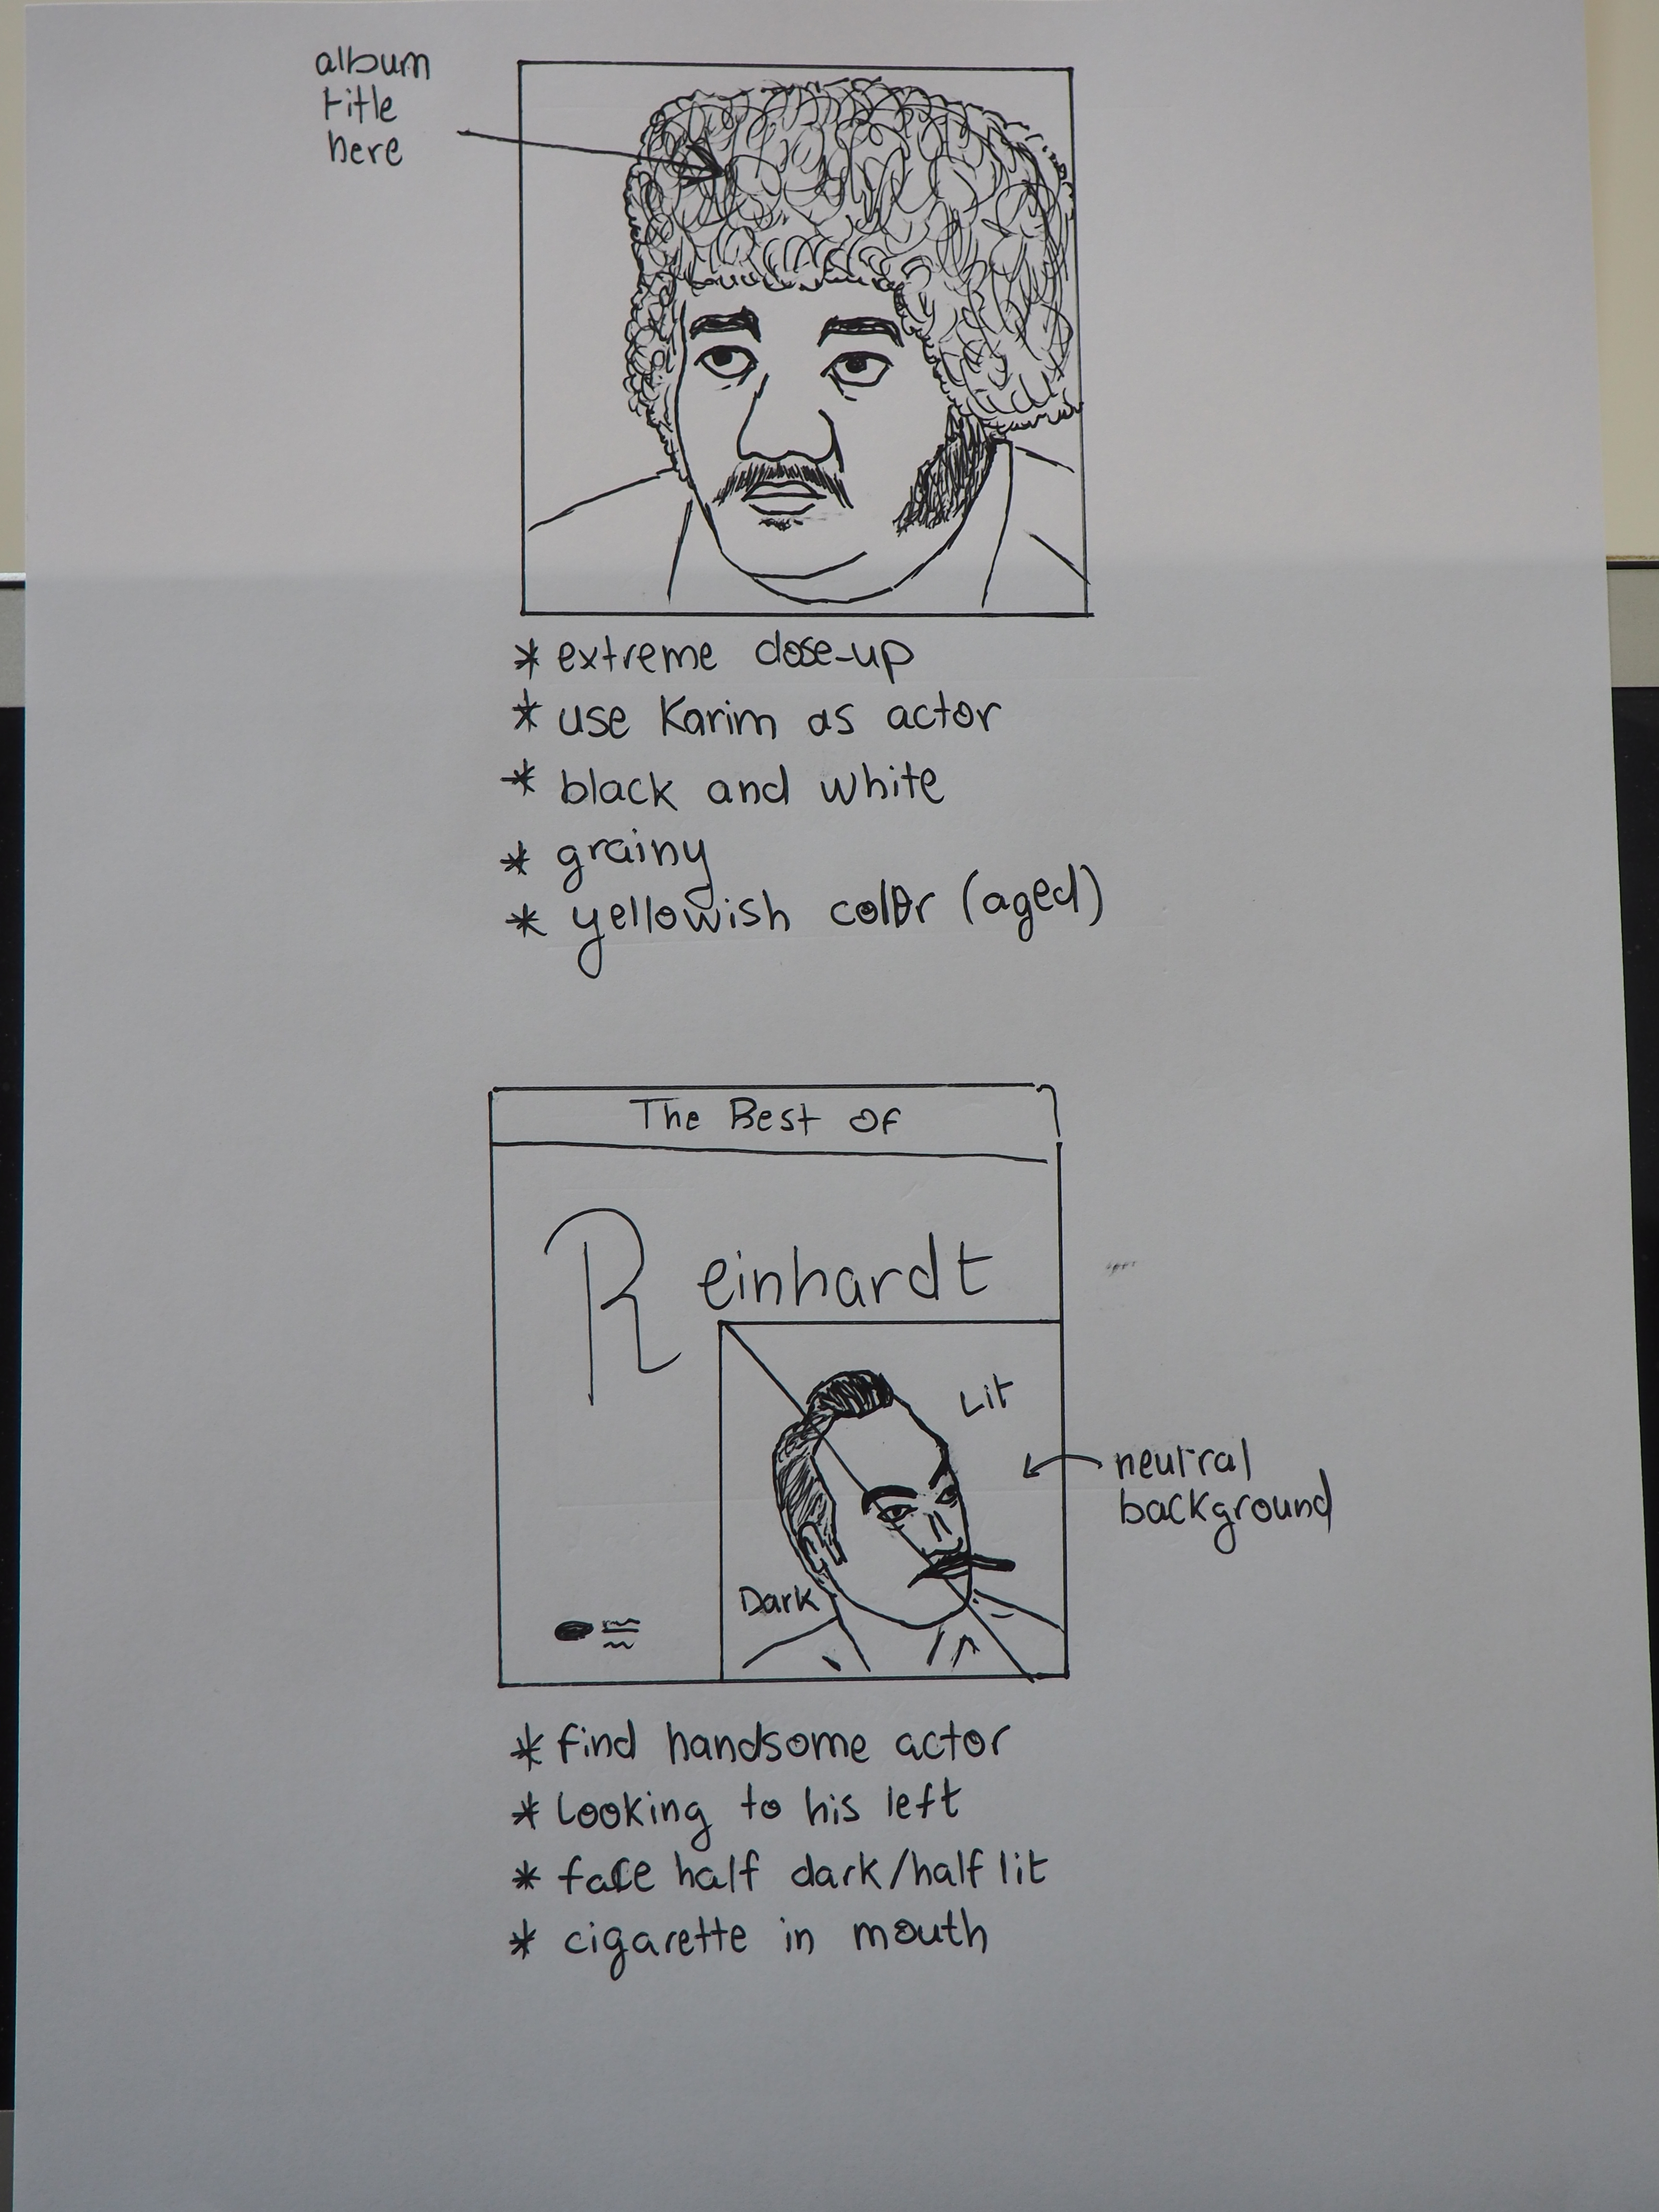 album
title
here
* extreme close-up
* use Karim as actor
* black and white
* grainy
* yellowish color (aged)
The Best Of
Reinhardt
Lit
neutral
background
Dark
* find handsome actor
* Looking to his left
* face half dark/half lit
* cigarette in mouth